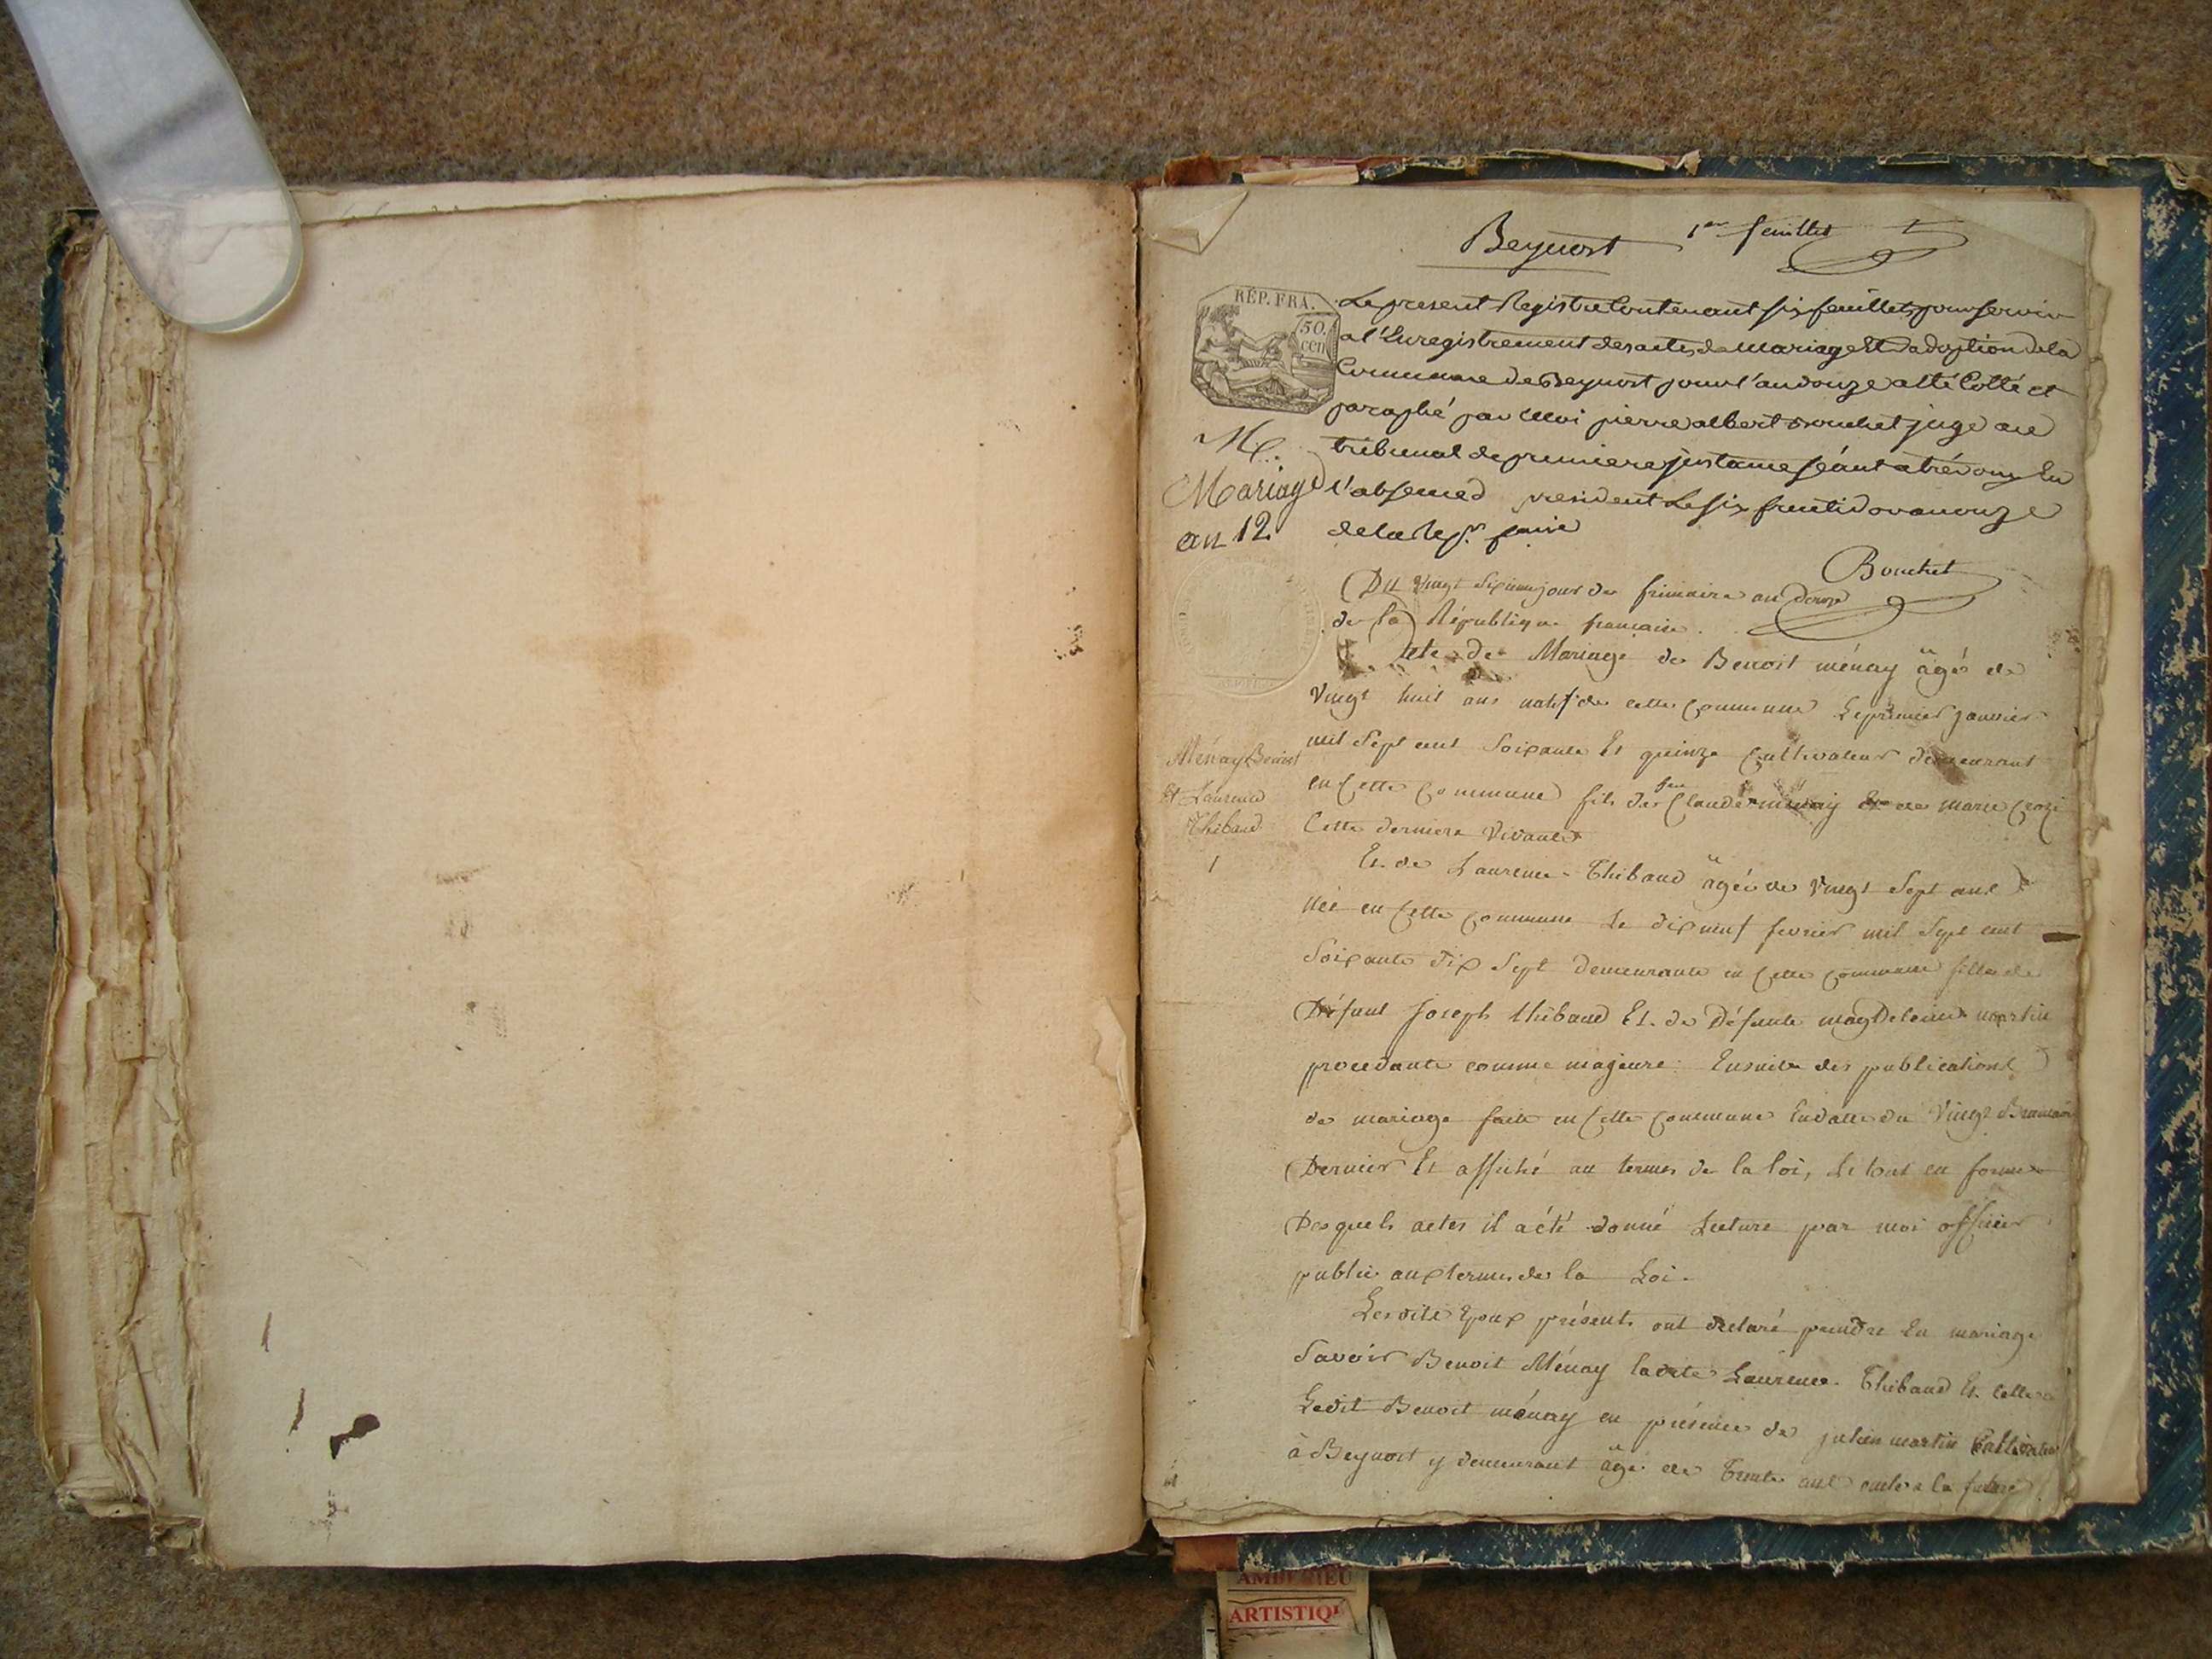 Beynost 1er feuillet
RÉP. FRA.
50.
cen
Le present Registre Contenant six feuillets pour servir
a l'Enregistrement des actes de Mariage Et d'adoption de la
Commune de Beynost pour l'an douze a été Cotté et
paraphé par Moi pierre albert Bouchet juge au
tribunal de premiere jnstance séant a trévoux En
l'absence d president Le six fructidor an onze
de la Rep.
M.
Mariage
an 12
Bouchet
Du Vingt Sixieme jour de frimaire an douze
de la République francaise.
Acte de Mariage de Benoit ménay âgé de
Vingt huit ans natif de cette Commune Le premier janvier
mil Sept cent Soixante Et quinze Cultivateur demeurant
en Cette Commune fils de feu Claude ménay Et de marie Crozi
Cette derniere Vivante
Ménay Benoist
Et Laurence
Thibaud
1
Et de Laurence Thibaud âgée de Vingt Sept ans
née en Cette Commune Le dix neuf fevrier mil Sept cent
Soixante dix Sept demeurante en Cette Commune fille de
Défunt Joseph thibaud Et de Défunte magdeleine martin
procedante comme majeure. Ensuite des publications
de mariage faite en Cette Commune En datte du Vingt Brumaire
Dernier Et affiché au termes de la loi, Le tout en forme
Desquels actes il a été donné Lecture par moi officier
public aux termes de la Loi.
Lesdits Epoux présents ont declaré prendre En mariage
Savoir Benoit Ménay ladite Laurence Thibaud Et Celle
Ledit Benoit ménay en présence de julien martin Cultivateur
à Beynost y demeurant âgé de Trente ans oncle a la future
AMBERIEU
ARTISTIQ